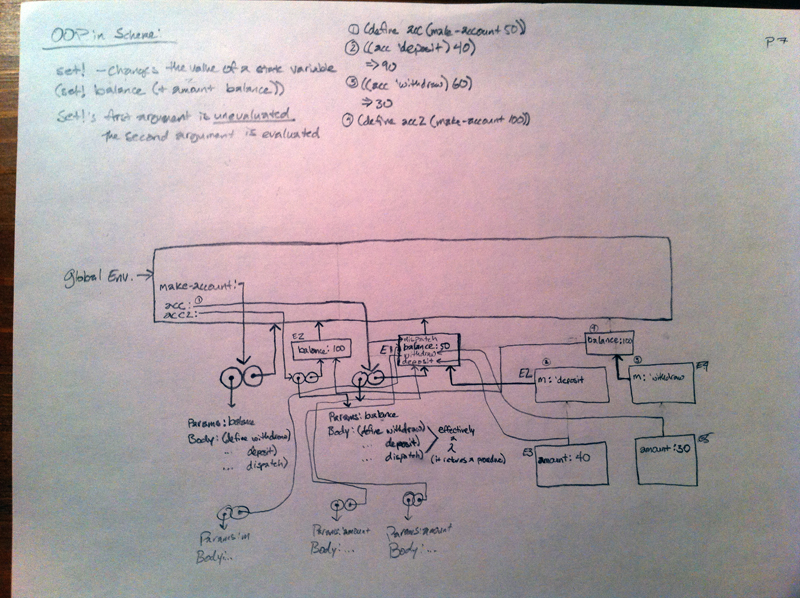 OOP in Scheme:
set! - Changes the value of a state variable
(set! balance (+ amount balance))
Set!'s first argument is unevaluated
the second argument is evaluated
① (define acc (make-account 50))
② ((acc 'deposit) 40)
=> 90
③ ((acc 'withdraw) 60)
=> 30
④ (define acc2 (make-account 100))
P7
Global Env.
make-account:
acc: ①
acc2:
E2
balance: 100
E1
dispatch
balance: 50
withdraw
deposit
④
balance: 100
E2
②
m: 'deposit
③
m: 'withdraw
E4
Params: balance
Body: (define withdraw)
... deposit)
... dispatch)
Params: balance
Body: (define withdraw)
... deposit)
... dispatch)
effectively
a
λ
(it returns a procedure)
E3
amount: 40
amount: 30
E5
Params: m
Body: ...
Params: amount
Body: ...
Params: amount
Body: ...